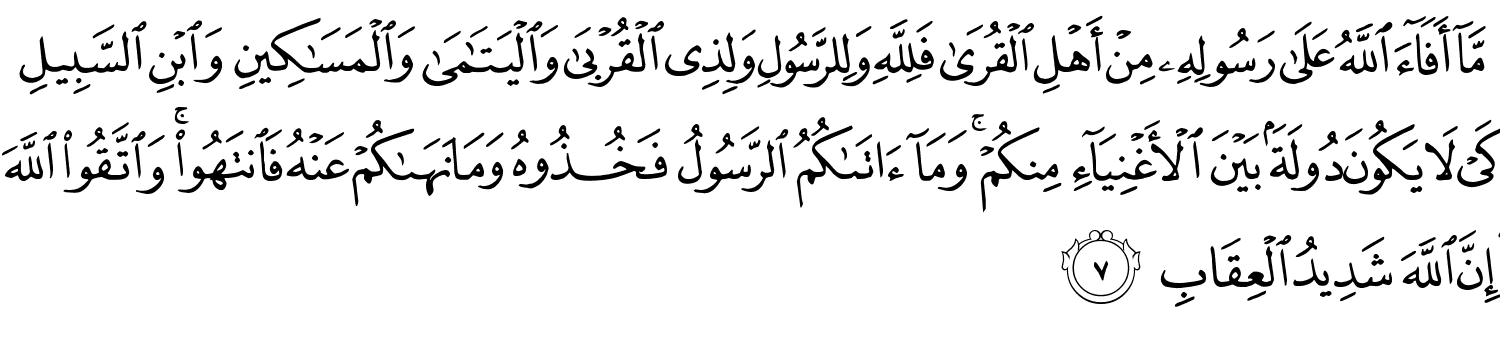 مَّآ أَفَآءَ ٱللَّهُ عَلَىٰ رَسُولِهِۦ مِنْ أَهْلِ ٱلْقُرَىٰ فَلِلَّهِ وَلِلرَّسُولِ وَلِذِى ٱلْقُرْبَىٰ وَٱلْيَتَـٰمَىٰ وَٱلْمَسَـٰكِينِ وَٱبْنِ ٱلسَّبِيلِ
كَىْ لَا يَكُونَ دُولَةًۢ بَيْنَ ٱلْأَغْنِيَآءِ مِنكُمْ ۚ وَمَآ ءَاتَىٰكُمُ ٱلرَّسُولُ فَخُـــذُوهُ وَمَا نَهَىٰكُمْ عَنْهُ فَٱنتَهُوا۟ ۚ وَٱتَّقُوا۟ ٱللَّهَ
إِنَّ ٱللَّهَ شَدِيدُ ٱلْعِقَابِ ٧